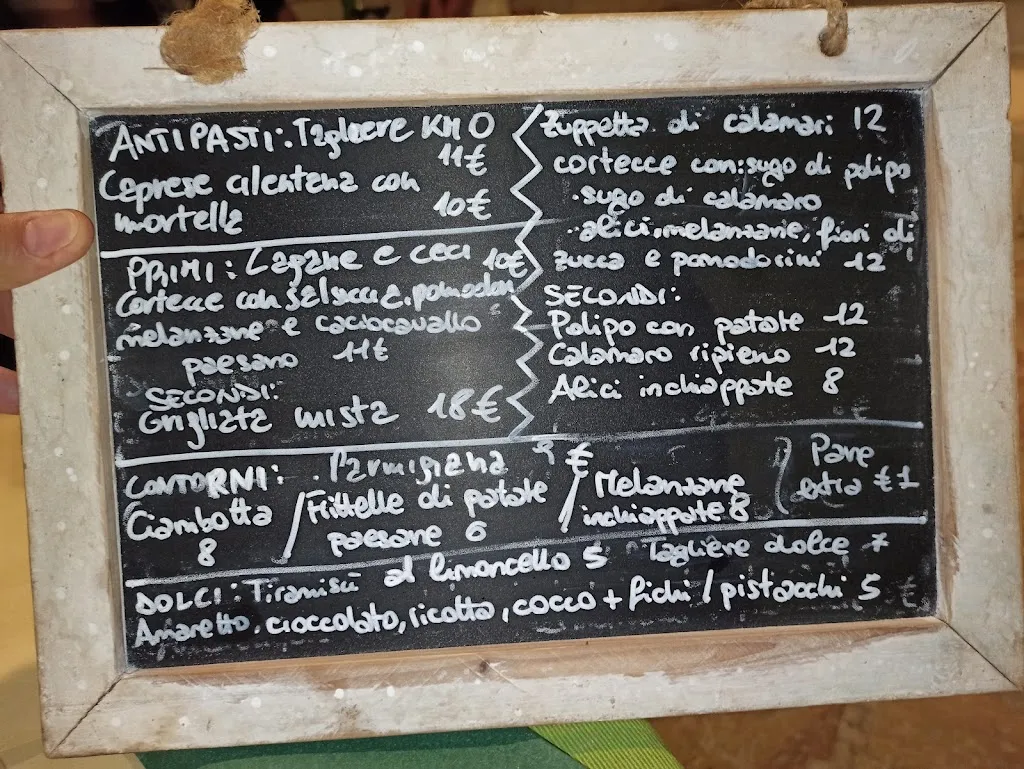 ANTIPASTI: Tagliere KM 0
11€
Caprese cilentana con
mortella 10€
PRIMI: Lagane e ceci 10€
Cortecce con salsicc e, pomodori
melanzane e caciocavallo
paesano 11€
SECONDI:
Grigliata mista 18€
Zuppetta di calamari 12
cortecce con: sugo di polipo
· sugo di calamaro
· alici, melanzane, fiori di
zucca e pomodorini 12
SECONDI:
Polipo con patate 12
Calamaro ripieno 12
Alici inchiappate 8
CONTORNI: . Parmigiana 9 €
Ciambotta / Frittelle di patate / Melanzane
8 paesane 6 inchiappate 8
Pane
extra €1
DOLCI: Tiramisù al limoncello 5 Tagliere dolce 7
Amaretto, cioccolato, ricotta, cocco + fichi / pistacchi 5 €